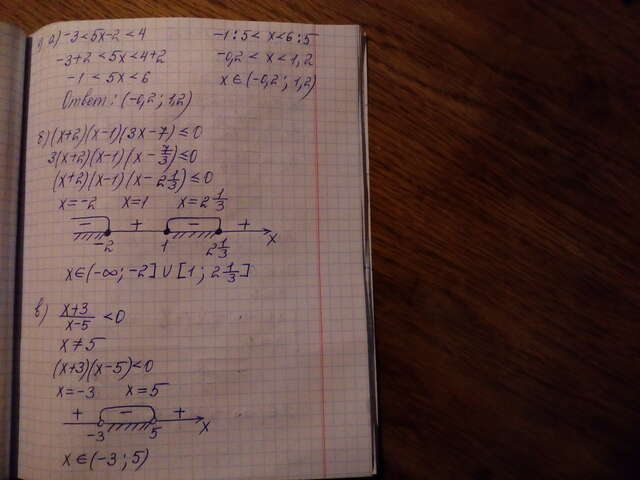 1) а) -3 < 5x-2 < 4
-3+2 < 5x < 4+2
-1 < 5x < 6
-1:5 < x < 6:5
-0,2 < x < 1,2
x ∈ (-0,2 ; 1,2)
Ответ: (-0,2 ; 1,2)
б) (x+2)(x-1)(3x-7) ≤ 0
3(x+2)(x-1)(x - 7/3) ≤ 0
(x+2)(x-1)(x - 2 1/3) ≤ 0
x=-2 x=1 x=2 1/3
- + - +
-2 1 2 1/3 x
x ∈ (-∞ ; -2] ∪ [1 ; 2 1/3]
в) (x+3)/(x-5) < 0
x ≠ 5
(x+3)(x-5) < 0
x=-3 x=5
+ - +
-3 5 x
x ∈ (-3 ; 5)